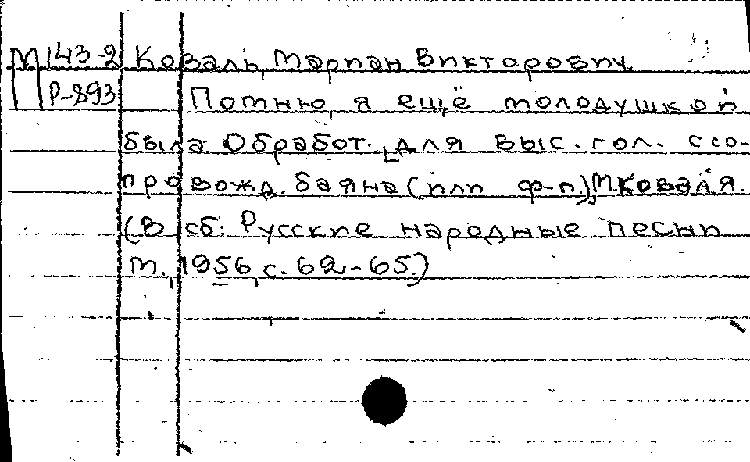 М 143-2 Коваль, Мариан Викторович
Р-893 Помню, я ещё молодушкой
была. Обработ. для выс. гол. с со-
провожд. баяна (или ф-п.) М. Коваля.
(В сб: Русские народные песни
М., 1956, с. 62-65.)